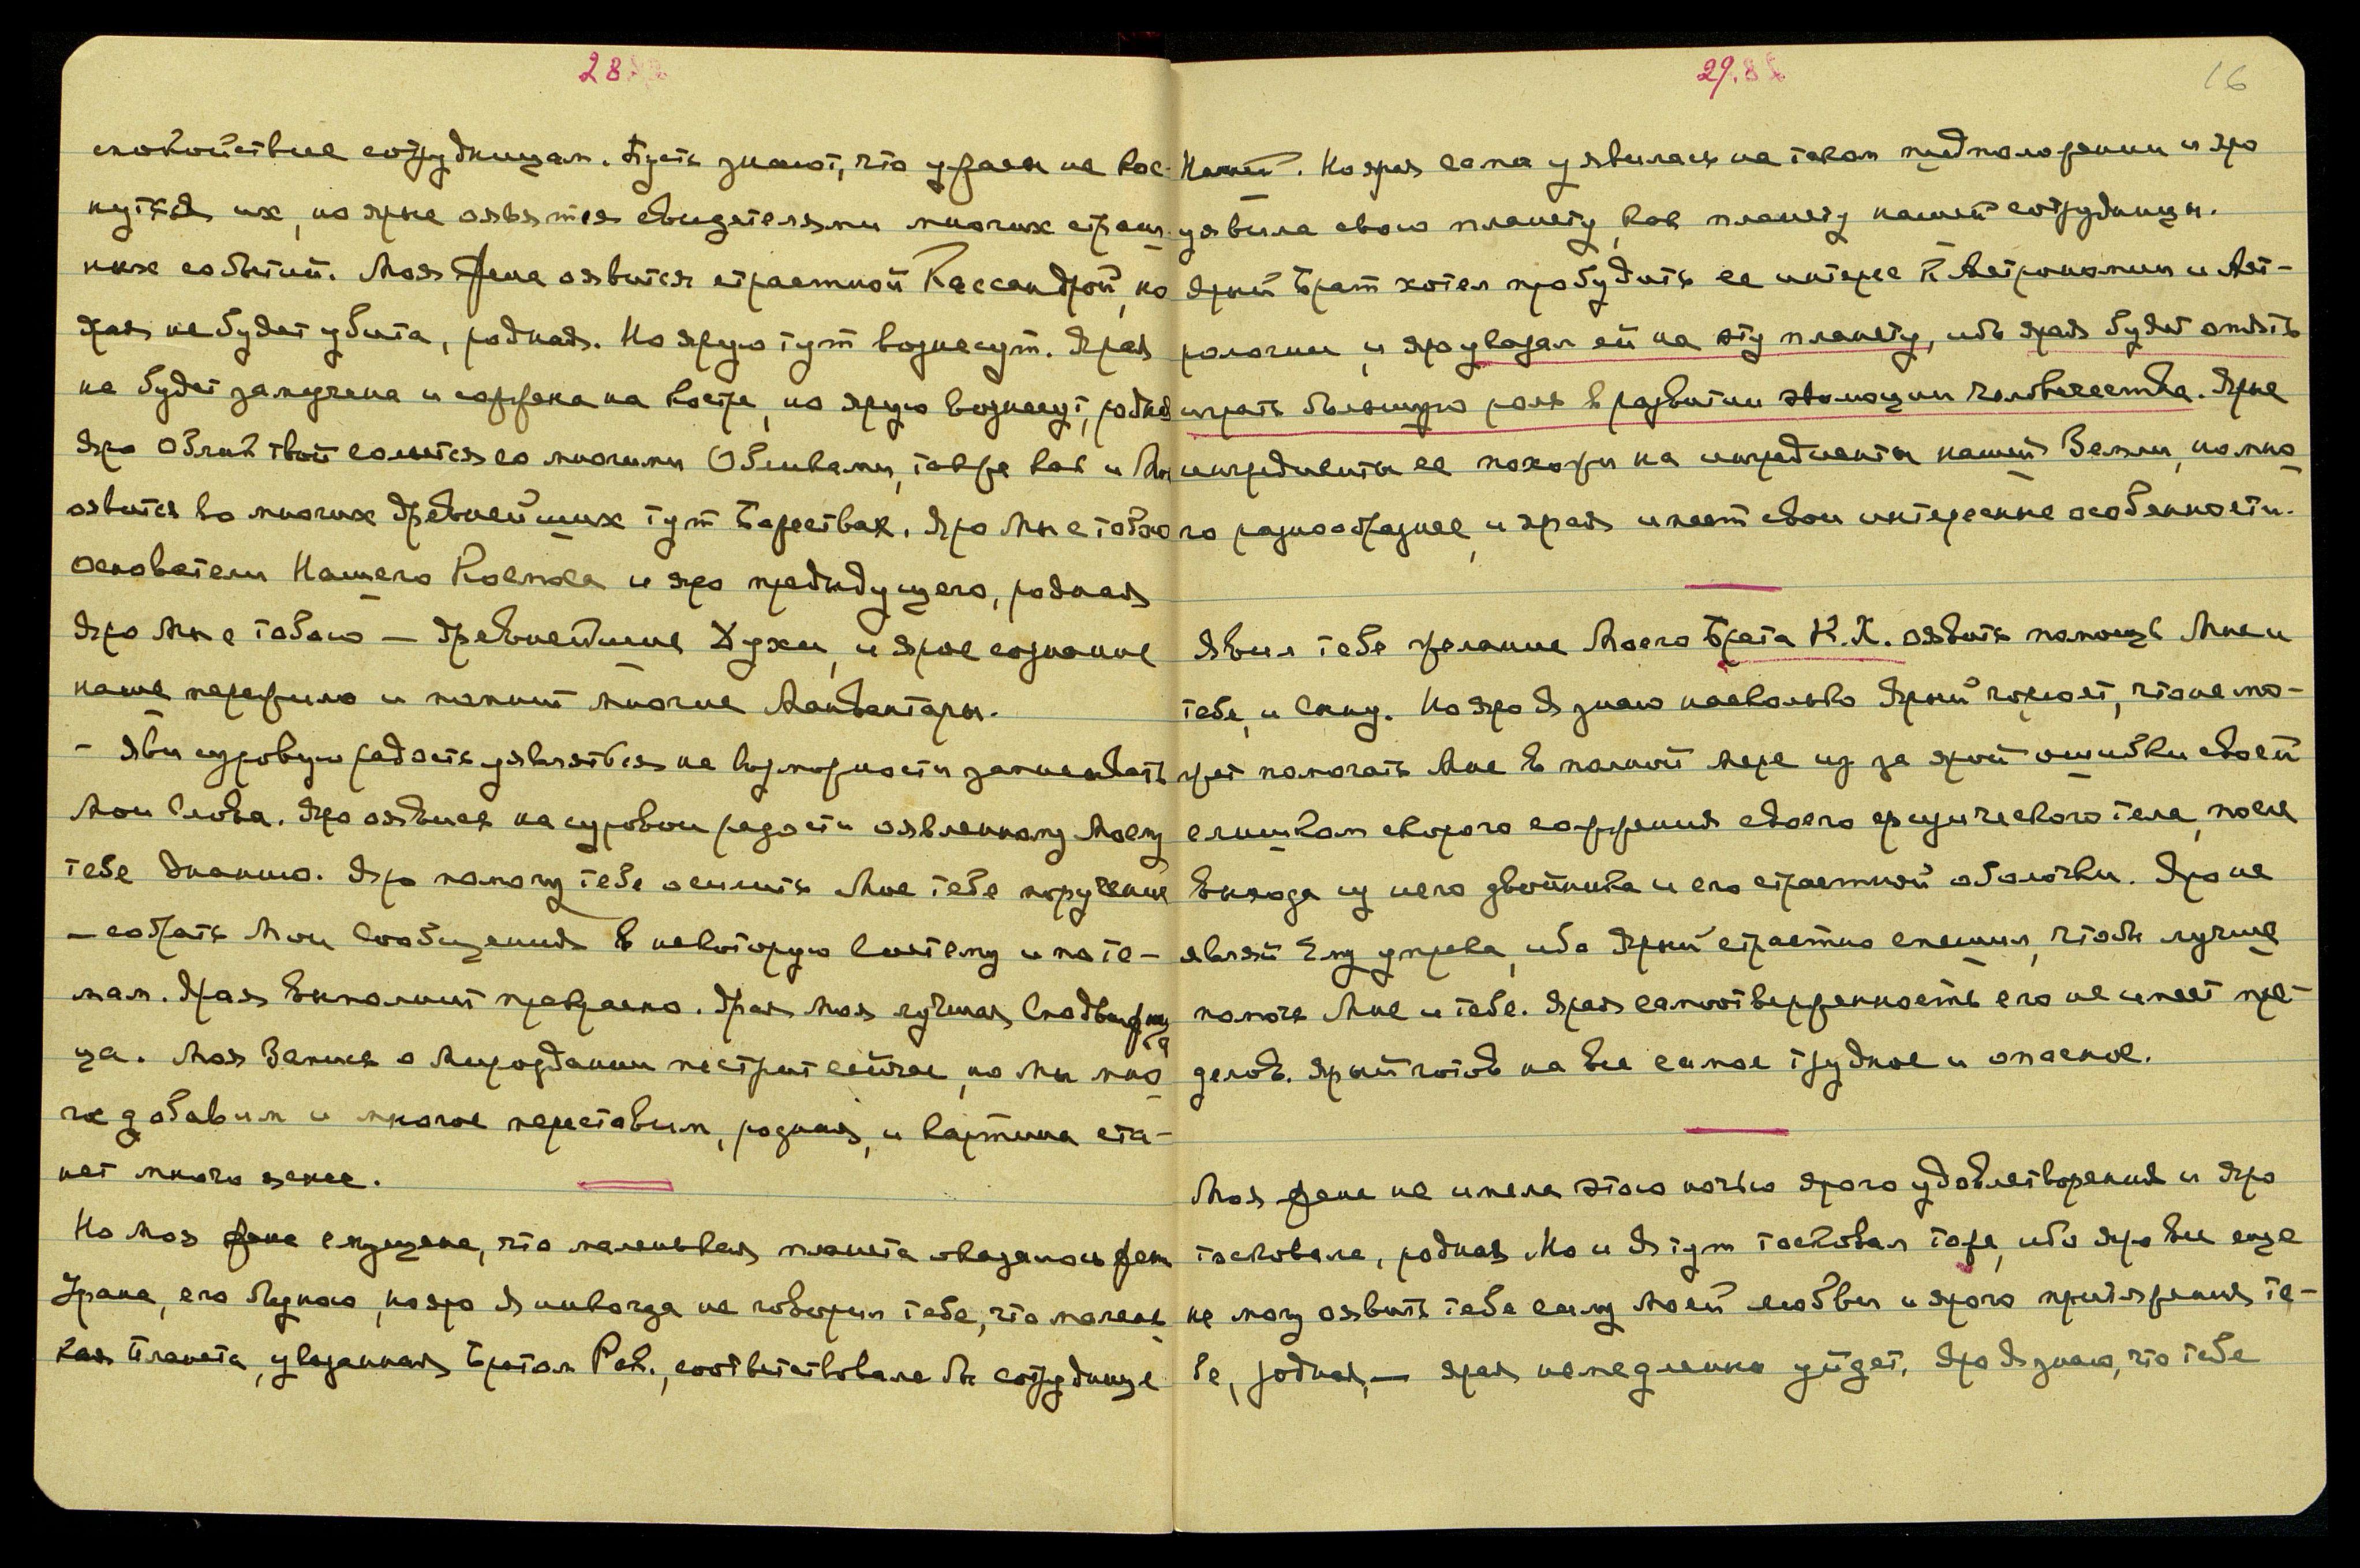 28
спокойствие сотрудницам. Пусть знают, что ужасы не кос-
нутся их, но ярые оявятся свидетелями многих страш-
ных событий. Моя Жена оявится страстной Кассандрой, но
ярая не будет убита, родная. Но ярую тут вознесут. Ярая
не будет замучена и сожжена на костре, но ярую вознесут, родная
Яро Облик твой сольется со многими Обликами, также как и Мой
оявится во многих древнейших тут Царствах. Яро Мы с тобою
основатели Нашего Космоса и яро предыдущего, родная
Яро Мы с тобою — древнейшие Духи, и ярое сознание
наше пережило и помнит многие Манвантары.
- Яви суровую радость уявляться на возможности запечатлеть
Мои Слова. Яро оявись на суровой радости оявленному Моему
тебе Знанию. Яро помогу тебе осилить Мое тебе поручение
— собрать Мои Сообщения в некоторую Систему и по те-
мам. Ярая выполнит прекрасно. Ярая Моя лучшая Сподвижни
ца. Моя Запись о Мироздании пестрит сейчас, но мы мно
гое добавим и многое переставим, родная, и картина ста-
нет много яснее.
Но Моя Жена смущена, что маленькая планета оказалась
Урана, его Луною, но яро Я никогда не говорил тебе, что малень
кая Планета, указанная Братом Рак., соответствовала бы сотруднице
29.8
16
Нашей. Но ярая сама уявилась на таком предположении и яро
уявила свою планету, как планету нашей сотрудницы.
Ярый Брат хотел пробудить ее интерес к Астрономии и Аст-
рологии, и яро указал ей на эту планету, ибо ярая будет опять
играть большую роль в развитии эволюции человечества. Ярые
ингредиенты ее похожи на ингредиенты нашей Земли, но мно
го разнообразнее, и ярая имеет свои интересные особенности.
Явил тебе желание Моего Брата К.Х. оявить помощь Мне и
тебе, и Сыну. Но яро Я знаю насколько Ярый горюет, что не мо-
жет помогать Мне в полной мере из за ярой ошибки своей
слишком скорого сожжения своего физического тела, после
выхода из него двойника и его страстной оболочки. Яро не
являй Ему упрека, ибо Ярый страстно спешил, чтобы лучше
помочь Мне и тебе. Ярая самоотверженность его не имеет пре-
делов. Ярый готов на все самое трудное и опасное.
Моя Жена не имела этою ночью ярого удовлетворения и яро
тосковала, родная. Но и Я тут тосковал тоже, ибо яро все еще
не могу оявить тебе силу Моей любви и ярого притяжения те-
бе, родная, — ярая немедленно уйдет. Яро Я знаю, что тебе